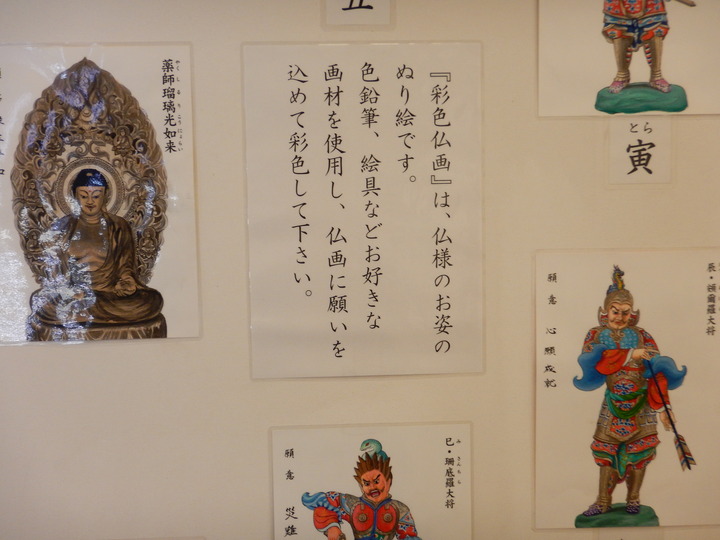 丑
とら
寅
『彩色仏画』は、仏様のお姿の
ぬり絵です。
色鉛筆、絵具などお好きな
画材を使用し、仏画に願いを
込めて彩色して下さい。
薬師瑠璃光如来
やくしるりこうにょらい
辰・頞儞羅大将
願意 心願成就
巳・珊底羅大将
み さんてら
願意 災難